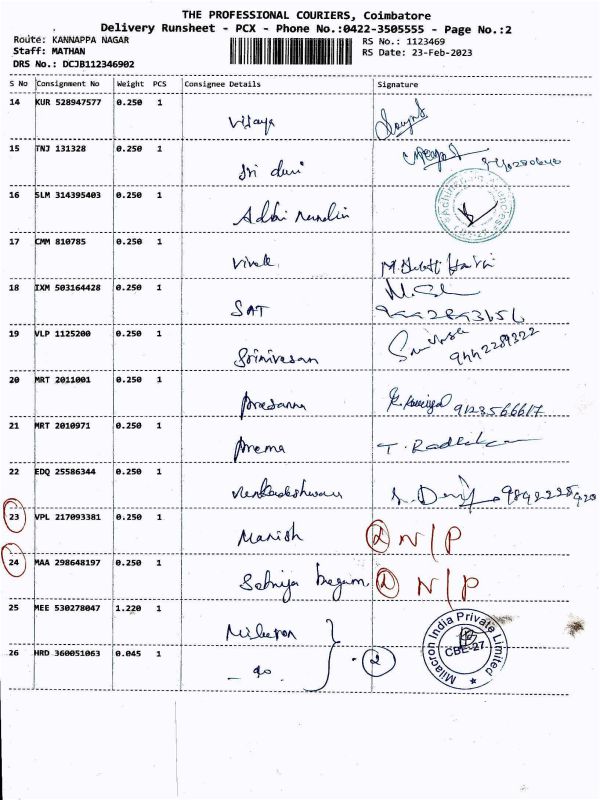 THE PROFESSIONAL COURIERS, Coimbatore
Delivery Runsheet - PCX - Phone No.:0422-3505555 - Page No.:2
Route: KANNAPPA NAGAR
RS No.: 1123469
Staff: MATHAN
RS Date: 23-Feb-2023
DRS No.: DCJB112346902
S No Consignment No Weight PCS Consignee Details Signature
14 KUR 528947577 0.250 1
Vijaya
15 TNJ 131328 0.250 1
Sri
16 SLM 314395403 0.250 1
17 CMM 810785 0.250 1
Vivek
18 IXM 503164428 0.250 1
SAT
19 VLP 1125200 0.250 1
Srinivasan
9442289322
20 MRT 2011001 0.250 1
Prasanna 9123566617
21 MRT 2010971 0.250 1
Prema
22 EDQ 25586344 0.250 1
23 VPL 217093381 0.250 1
Manish 2 N/P
24 MAA 298648197 0.250 1
begum N/P
25 MEE 530278047 1.220 1
Milacron India Private Limited
CBE-27
26 HRD 360051063 0.045 1
- do
2